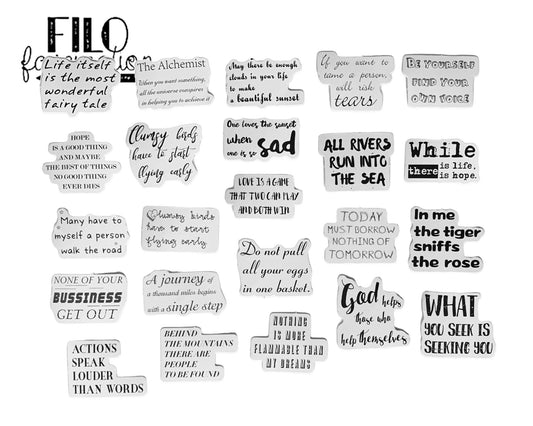 FILO
Life itself
is the most
wonderful
fairy tale
The Alchemist
When you want something,
all the universe conspires
in helping you to achieve it
May there be enough
clouds in your life
to make
a beautiful sunset
If you want to
tame a person,
will risk
tears
BE YOURSELF
FIND YOUR
OWN VOICE
HOPE
IS A GOOD THING
AND MAYBE
THE BEST OF THINGS
NO GOOD THING
EVER DIES
Clumsy birds
have to start
flying early
One loves the sunset
when
one is so sad
LOVE IS A GAME
THAT TWO CAN PLAY
AND BOTH WIN
ALL RIVERS
RUN INTO
THE SEA
While
there is life,
is hope.
Many have to
myself a person
walk the road
Clumsy birds
have to start
flying early
Do not pull
all your eggs
in one basket.
TODAY
MUST BORROW
NOTHING OF
TOMORROW
In me
the tiger
sniffs
the rose
NONE OF YOUR
BUSSINESS
GET OUT
A journey of
a thousand miles begins
with a single step
God helps
those who
help themselves
WHAT
YOU SEEK IS
SEEKING YOU
ACTIONS
SPEAK
LOUDER
THAN WORDS
BEHIND
THE MOUNTAINS
THERE ARE
PEOPLE
TO BE FOUND
NOTHING
IS MORE
FLAMMABLE THAN
MY DREAMS